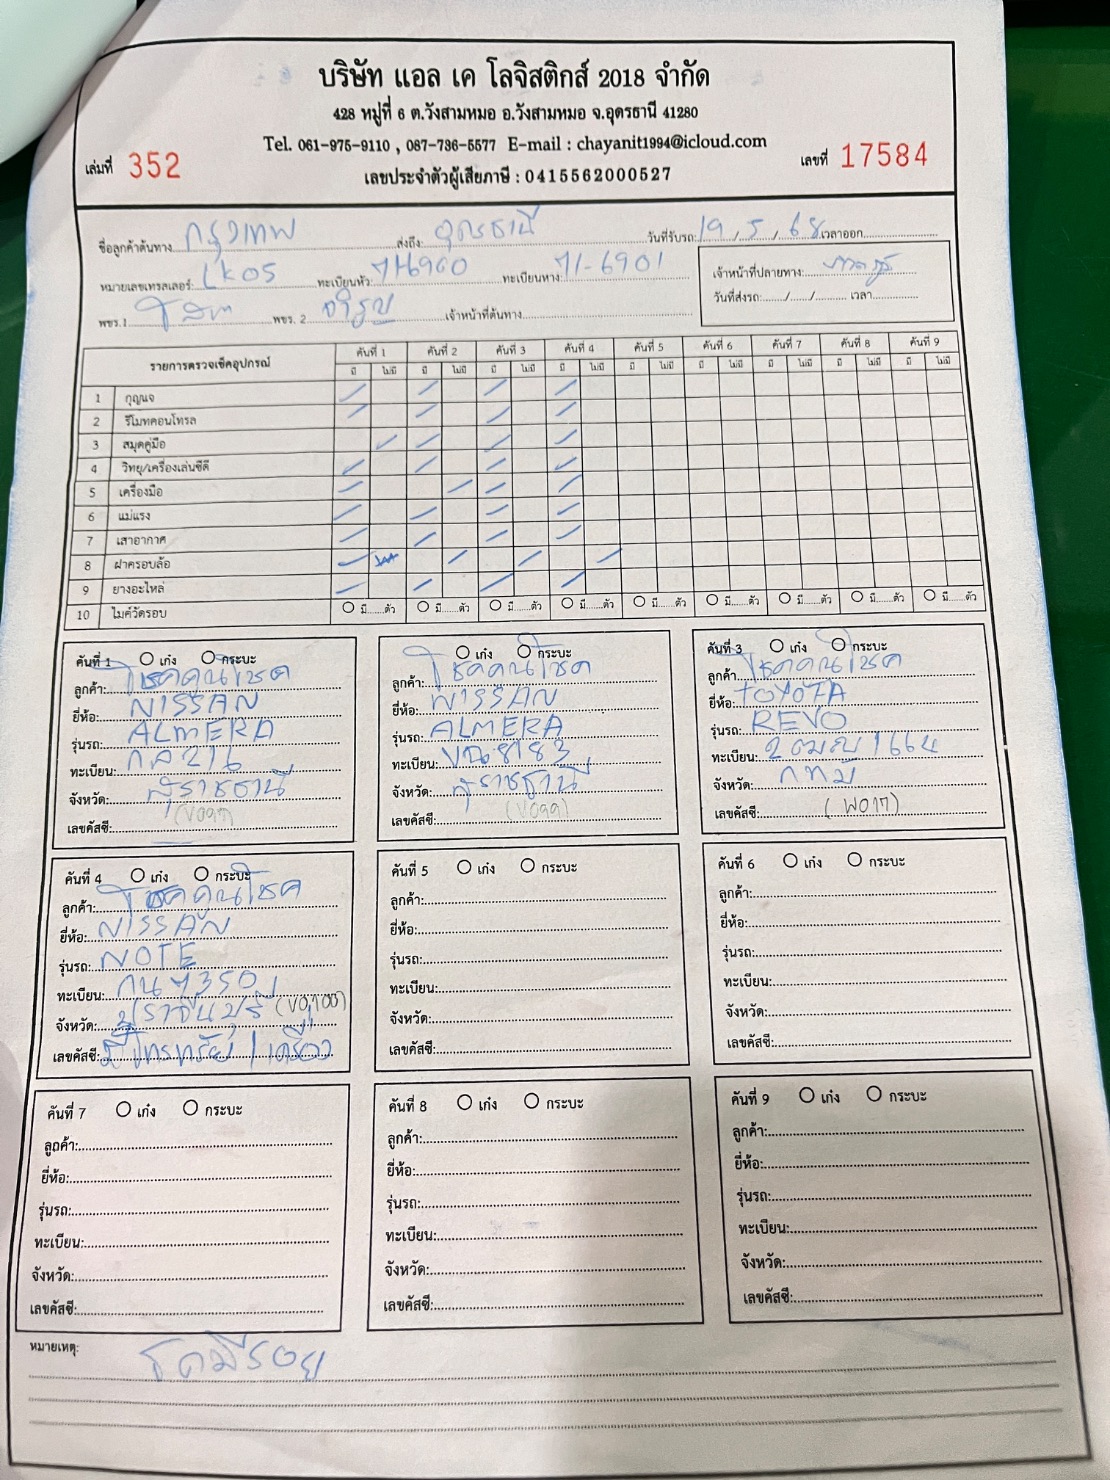 บริษัท แอล เค โลจิสติกส์ 2018 จำกัด
428 หมู่ที่ 6 ต.วังสามหมอ อ.วังสามหมอ จ.อุดรธานี 41280
Tel. 061-975-9110 , 087-736-5577 E-mail : chayanit1994@icloud.com
เล่มที่ 352 เลขที่ 17584
เลขประจำตัวผู้เสียภาษี : 0415562000527
ชื่อลูกค้าต้นทาง กรุงเทพ ส่งถึง: อุดรธานี วันที่รับรถ: 19 / 5 / 68 เวลาออก
หมายเลขเทรลเลอร์: LK05 ทะเบียนหัว: ทะเบียนหาง: 71-6901 เจ้าหน้าที่ปลายทาง:
พขร.1 พขร. 2 เจ้าหน้าที่ต้นทาง วันที่ส่งรถ: / / เวลา
รายการตรวจเช็คอุปกรณ์ คันที่ 1 คันที่ 2 คันที่ 3 คันที่ 4 คันที่ 5 คันที่ 6 คันที่ 7 คันที่ 8 คันที่ 9
มี ไม่มี มี ไม่มี มี ไม่มี มี ไม่มี มี ไม่มี มี ไม่มี มี ไม่มี มี ไม่มี มี ไม่มี
1 กุญแจ
2 รีโมทคอนโทรล
3 สมุดคู่มือ
4 วิทยุ/เครื่องเล่นซีดี
5 เครื่องมือ
6 แม่แรง
7 เสาอากาศ
8 ฝาครอบล้อ
9 ยางอะไหล่
10 ไมค์วัดรอบ มี......ตัว มี......ตัว มี......ตัว มี......ตัว มี......ตัว มี......ตัว มี......ตัว มี......ตัว มี......ตัว
คันที่ 1 เก๋ง กระบะ
ลูกค้า: โชคคูนโชค
ยี่ห้อ: NISSAN
รุ่นรถ: ALMERA
ทะเบียน:
จังหวัด: สุราชธานี
เลขคัสซี: (V097)
เก๋ง กระบะ
ลูกค้า: โชคคูนโชค
ยี่ห้อ: NISSAN
รุ่นรถ: ALMERA
ทะเบียน: 8183
จังหวัด: สุราชธานี
เลขคัสซี: (V099)
คันที่ 3 เก๋ง กระบะ
ลูกค้า: โชคคูนโชค
ยี่ห้อ: TOYOTA
รุ่นรถ: REVO
ทะเบียน: 1664
จังหวัด: กทม
เลขคัสซี: (W017)
คันที่ 4 เก๋ง กระบะ
ลูกค้า: โชคคูนโชค
ยี่ห้อ: NISSAN
รุ่นรถ: NOTE
ทะเบียน: กน 7350
จังหวัด: ปราจีนบุรี (V0100)
เลขคัสซี: มีโทรทรัย 1 เครื่อง
คันที่ 5 เก๋ง กระบะ
ลูกค้า:
ยี่ห้อ:
รุ่นรถ:
ทะเบียน:
จังหวัด:
เลขคัสซี:
คันที่ 6 เก๋ง กระบะ
ลูกค้า:
ยี่ห้อ:
รุ่นรถ:
ทะเบียน:
จังหวัด:
เลขคัสซี:
คันที่ 7 เก๋ง กระบะ
ลูกค้า:
ยี่ห้อ:
รุ่นรถ:
ทะเบียน:
จังหวัด:
เลขคัสซี:
คันที่ 8 เก๋ง กระบะ
ลูกค้า:
ยี่ห้อ:
รุ่นรถ:
ทะเบียน:
จังหวัด:
เลขคัสซี:
คันที่ 9 เก๋ง กระบะ
ลูกค้า:
ยี่ห้อ:
รุ่นรถ:
ทะเบียน:
จังหวัด:
เลขคัสซี:
หมายเหตุ: รถมีรอย